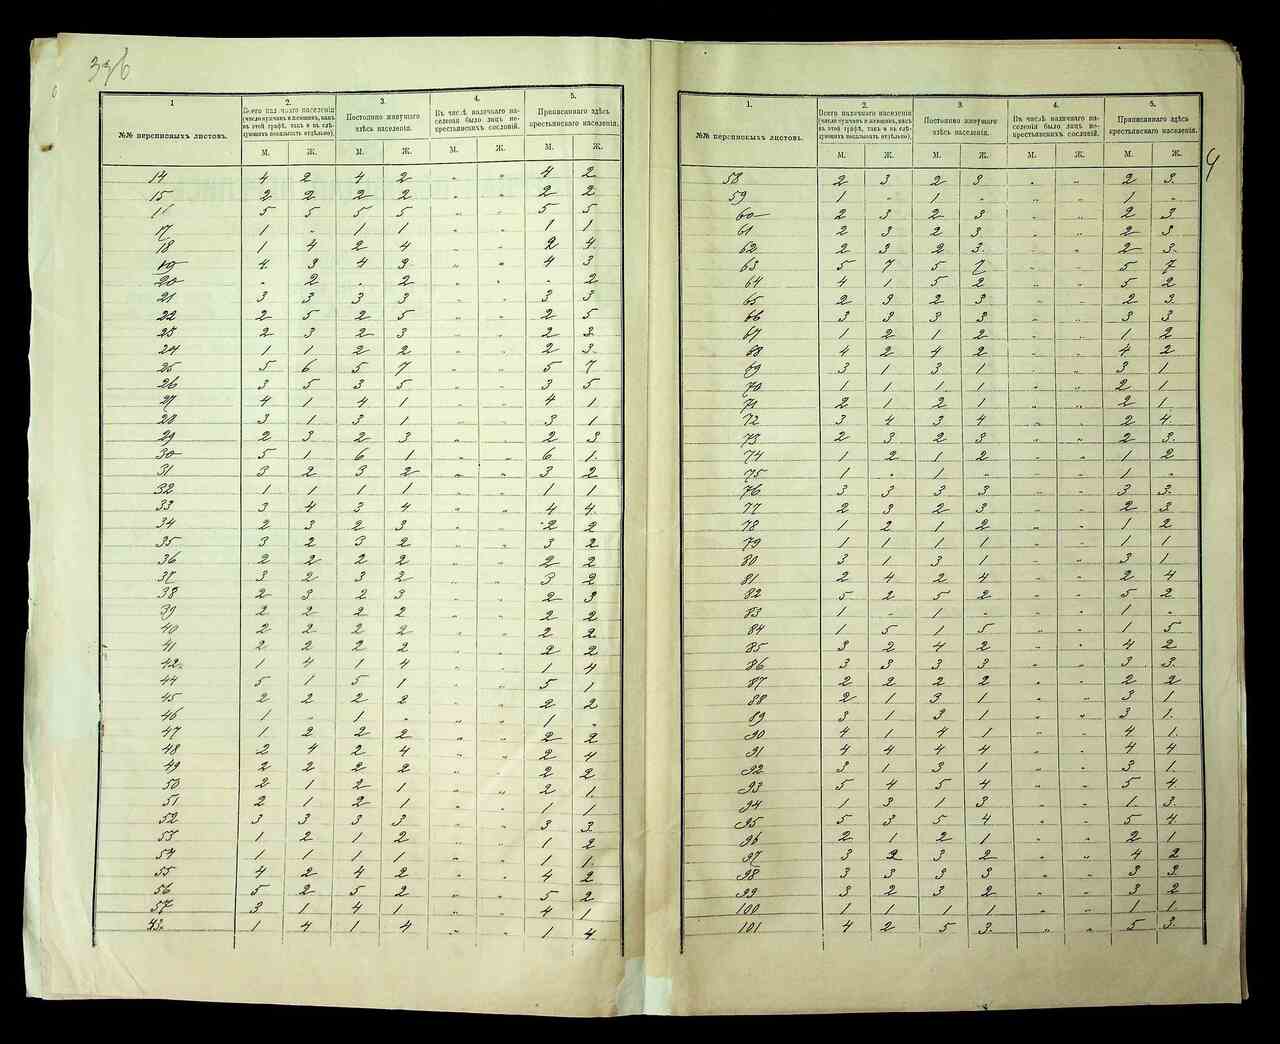 336
1
2.
3.
4.
5.
№№ переписныхъ листовъ.
Всего наличнаго населенія (число мужчинъ и женщинъ, какъ въ этой графѣ, такъ и въ слѣдующихъ показывать отдѣльно).
Постоянно живущаго здѣсь населенія.
Въ числѣ наличнаго населенія было лицъ не-крестьянскихъ сословій.
Приписаннаго здѣсь крестьянскаго населенія.
М. Ж. М. Ж. М. Ж. М. Ж.
14 4 2 4 2 „ „ 4 2
15 2 2 2 2 „ „ 2 2
16 5 5 5 5 „ „ 5 5
17 1 „ 1 1 „ „ 1 1
18 1 4 2 4 „ „ 2 4
19 4 3 4 3 „ „ 4 3
20 „ 2 „ 2 „ „ „ 2
21 3 3 3 3 „ „ 3 3
22 2 5 2 5 „ „ 2 5
23 2 3 2 3 „ „ 2 3
24 1 1 2 2 „ „ 2 3
25 5 6 5 7 „ „ 5 7
26 3 5 3 5 „ „ 3 5
27 4 1 4 1 „ „ 4 1
28 3 1 3 1 „ „ 3 1
29 2 3 2 3 „ „ 2 3
30 5 1 6 1 „ „ 6 1
31 3 2 3 2 „ „ 3 2
32 1 1 1 1 „ „ 1 1
33 3 4 3 4 „ „ 4 4
34 2 3 2 3 „ „ 2 2
35 3 2 3 2 „ „ 3 2
36 2 2 2 2 „ „ 2 2
37 3 2 3 2 „ „ 3 2
38 2 3 2 3 „ „ 2 3
39 2 2 2 2 „ „ 2 2
40 2 2 2 2 „ „ 2 2
41 2 2 2 2 „ „ 2 2
42 1 4 1 4 „ „ 1 4
44 5 1 5 1 „ „ 5 1
45 2 2 2 2 „ „ 2 2
46 1 „ 1 „ „ „ 1 „
47 1 2 2 2 „ „ 2 2
48 2 4 2 4 „ „ 2 4
49 2 2 2 2 „ „ 2 2
50 2 1 2 1 „ „ 2 1
51 2 1 2 1 „ „ 1 1
52 3 3 3 3 „ „ 3 3
53 1 2 1 2 „ „ 1 2
54 1 1 1 1 „ „ 1 1
55 4 2 4 2 „ „ 4 2
56 5 2 5 2 „ „ 5 2
57 3 1 4 1 „ „ 4 1
43. 1 4 1 4 „ „ 1 4
4
1.
2.
3.
4.
5.
№№ переписныхъ листовъ.
Всего наличнаго населенія (число мужчинъ и женщинъ, какъ въ этой графѣ, такъ и въ слѣдующихъ показывать отдѣльно).
Постоянно живущаго здѣсь населенія.
Въ числѣ наличнаго населенія было лицъ не-крестьянскихъ сословій.
Приписаннаго здѣсь крестьянскаго населенія.
М. Ж. М. Ж. М. Ж. М. Ж.
58 2 3 2 3 „ „ 2 3
59 1 „ 1 „ „ „ 1 „
60 2 3 2 3 „ „ 2 3
61 2 3 2 3 „ „ 2 3
62 2 3 2 3 „ „ 2 3
63 5 7 5 7 „ „ 5 7
64 4 1 5 2 „ „ 5 2
65 2 3 2 3 „ „ 2 3
66 3 3 3 3 „ „ 3 3
67 1 2 1 2 „ „ 1 2
68 4 2 4 2 „ „ 4 2
69 3 1 3 1 „ „ 3 1
70 1 1 1 1 „ „ 2 1
71 2 1 2 1 „ „ 2 1
72 3 4 3 4 „ „ 2 4
73 2 3 2 3 „ „ 2 3
74 1 2 1 2 „ „ 1 2
75 1 „ 1 „ „ „ 1 „
76 3 3 3 3 „ „ 3 3
77 2 3 2 3 „ „ 2 3
78 1 2 1 2 „ „ 1 2
79 1 1 1 1 „ „ 1 1
80 3 1 3 1 „ „ 3 1
81 2 4 2 4 „ „ 2 4
82 5 2 5 2 „ „ 5 2
83 1 „ 1 „ „ „ 1 „
84 1 5 1 5 „ „ 1 5
85 3 2 4 2 „ „ 4 2
86 3 3 3 3 „ „ 3 3
87 2 2 2 2 „ „ 2 2
88 2 1 3 1 „ „ 3 1
89 3 1 3 1 „ „ 3 1
90 4 1 4 1 „ „ 4 1
91 4 4 4 4 „ „ 4 4
92 3 1 3 1 „ „ 3 1
93 5 4 5 4 „ „ 5 4
94 1 3 1 3 „ „ 1 3
95 5 3 5 4 „ „ 5 4
96 2 1 2 1 „ „ 2 1
97 3 2 3 2 „ „ 4 2
98 3 3 3 3 „ „ 3 3
99 3 2 3 2 „ „ 3 2
100 1 1 1 1 „ „ 1 1
101 4 2 5 3 „ „ 5 3